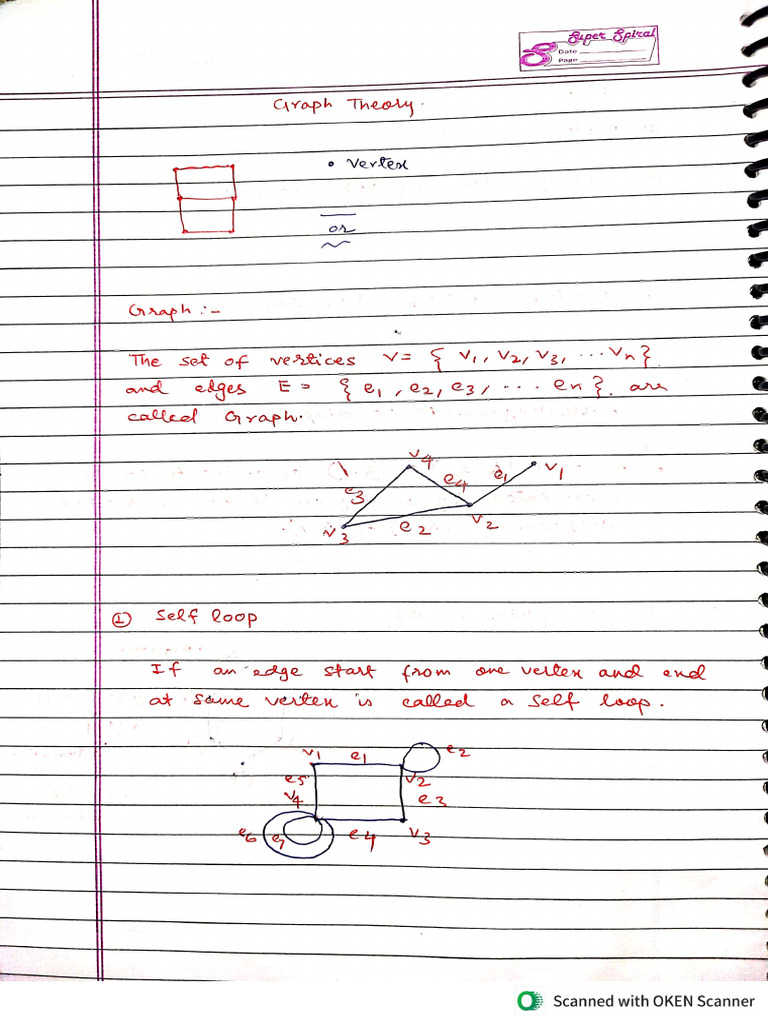 Super Spiral
Date
Page
Graph Theory.
Vertex
or
Graph :-
The set of vertices V = { V1, V2, V3, ... Vn }
and edges E = { e1, e2, e3, .... en }. are
called Graph.
V4
e4
e1
V1
e3
e2
V2
V3
① Self loop
If an edge start from one vertex and end
at same vertex is called a self loop.
V1 e1 e2
e5 V2
V4 e3
e6 e7 e4 V3
Scanned with OKEN Scanner